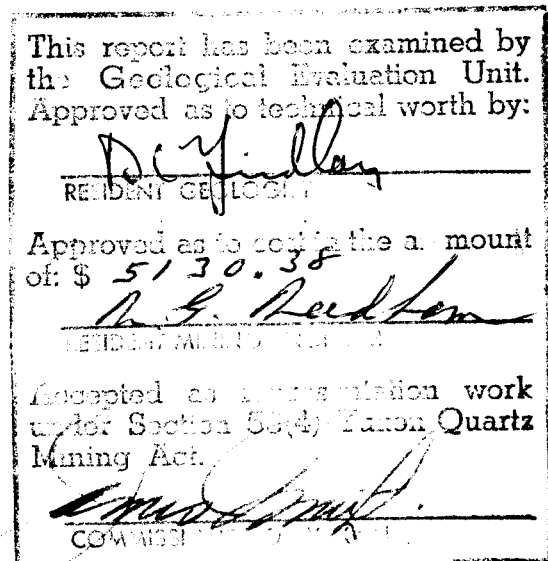 This report has been examined by
the Geological Evaluation Unit.
Approved as to technical worth by:
D C Findlay
RESIDENT GEOLOGIST
Approved as to cost in the amount
of: $ 5130.38
RESIDENT MINING
Accepted as representation work
under Section 53(4) Yukon Quartz
Mining Act.